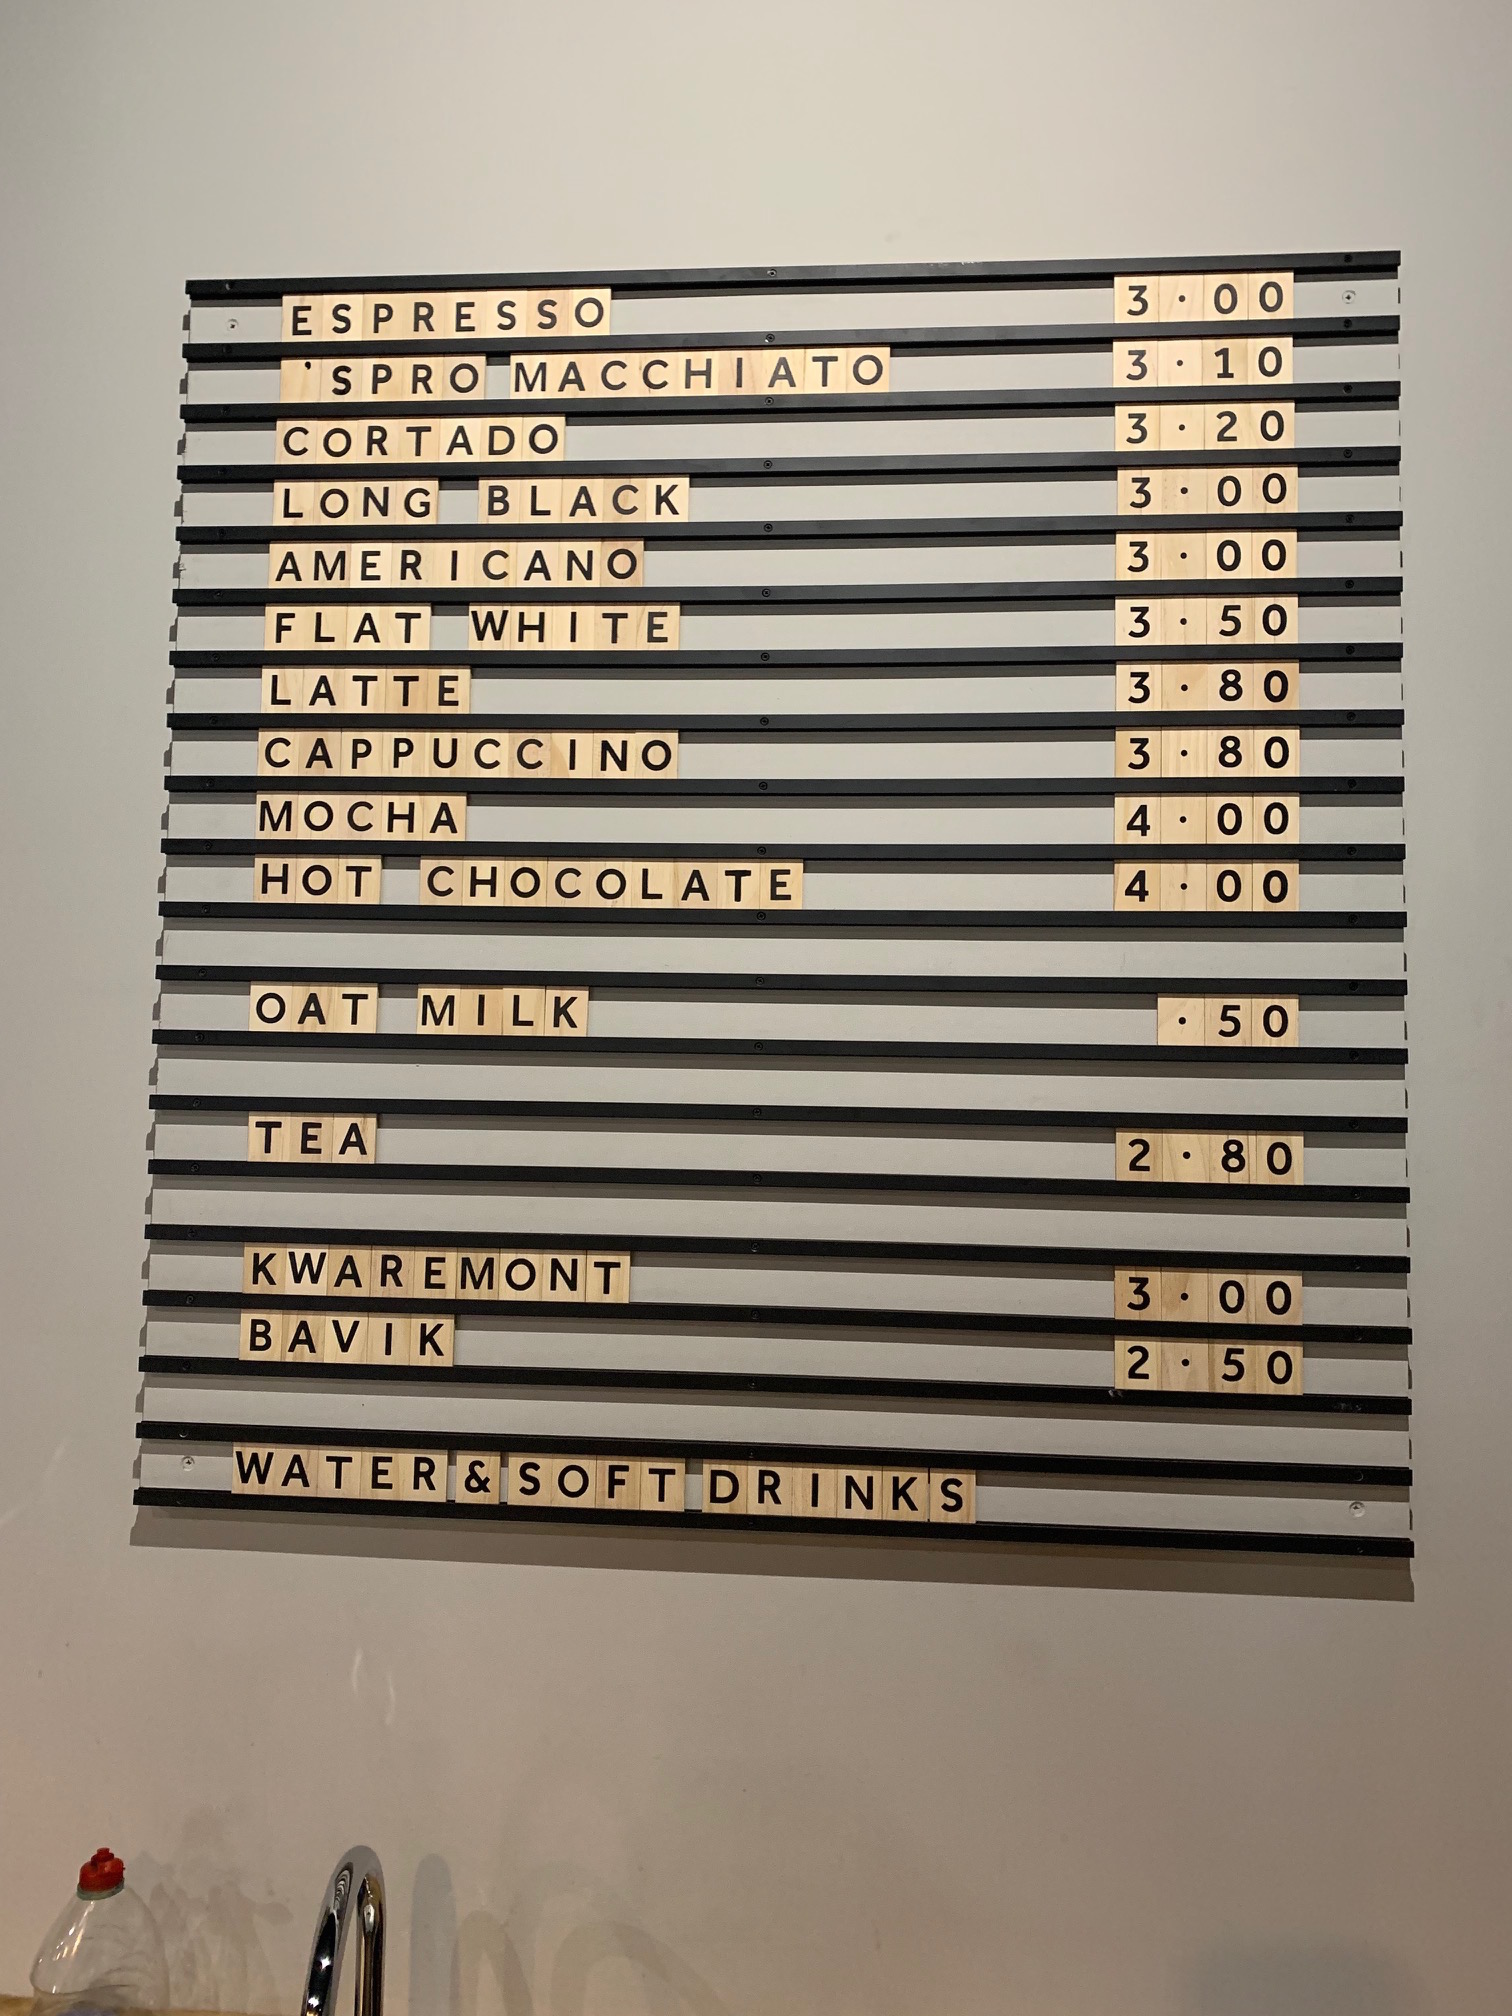 ESPRESSO 3·00
'SPRO MACCHIATO 3·10
CORTADO 3·20
LONG BLACK 3·00
AMERICANO 3·00
FLAT WHITE 3·50
LATTE 3·80
CAPPUCCINO 3·80
MOCHA 4·00
HOT CHOCOLATE 4·00
OAT MILK ·50
TEA 2·80
KWAREMONT 3·00
BAVIK 2·50
WATER & SOFT DRINKS